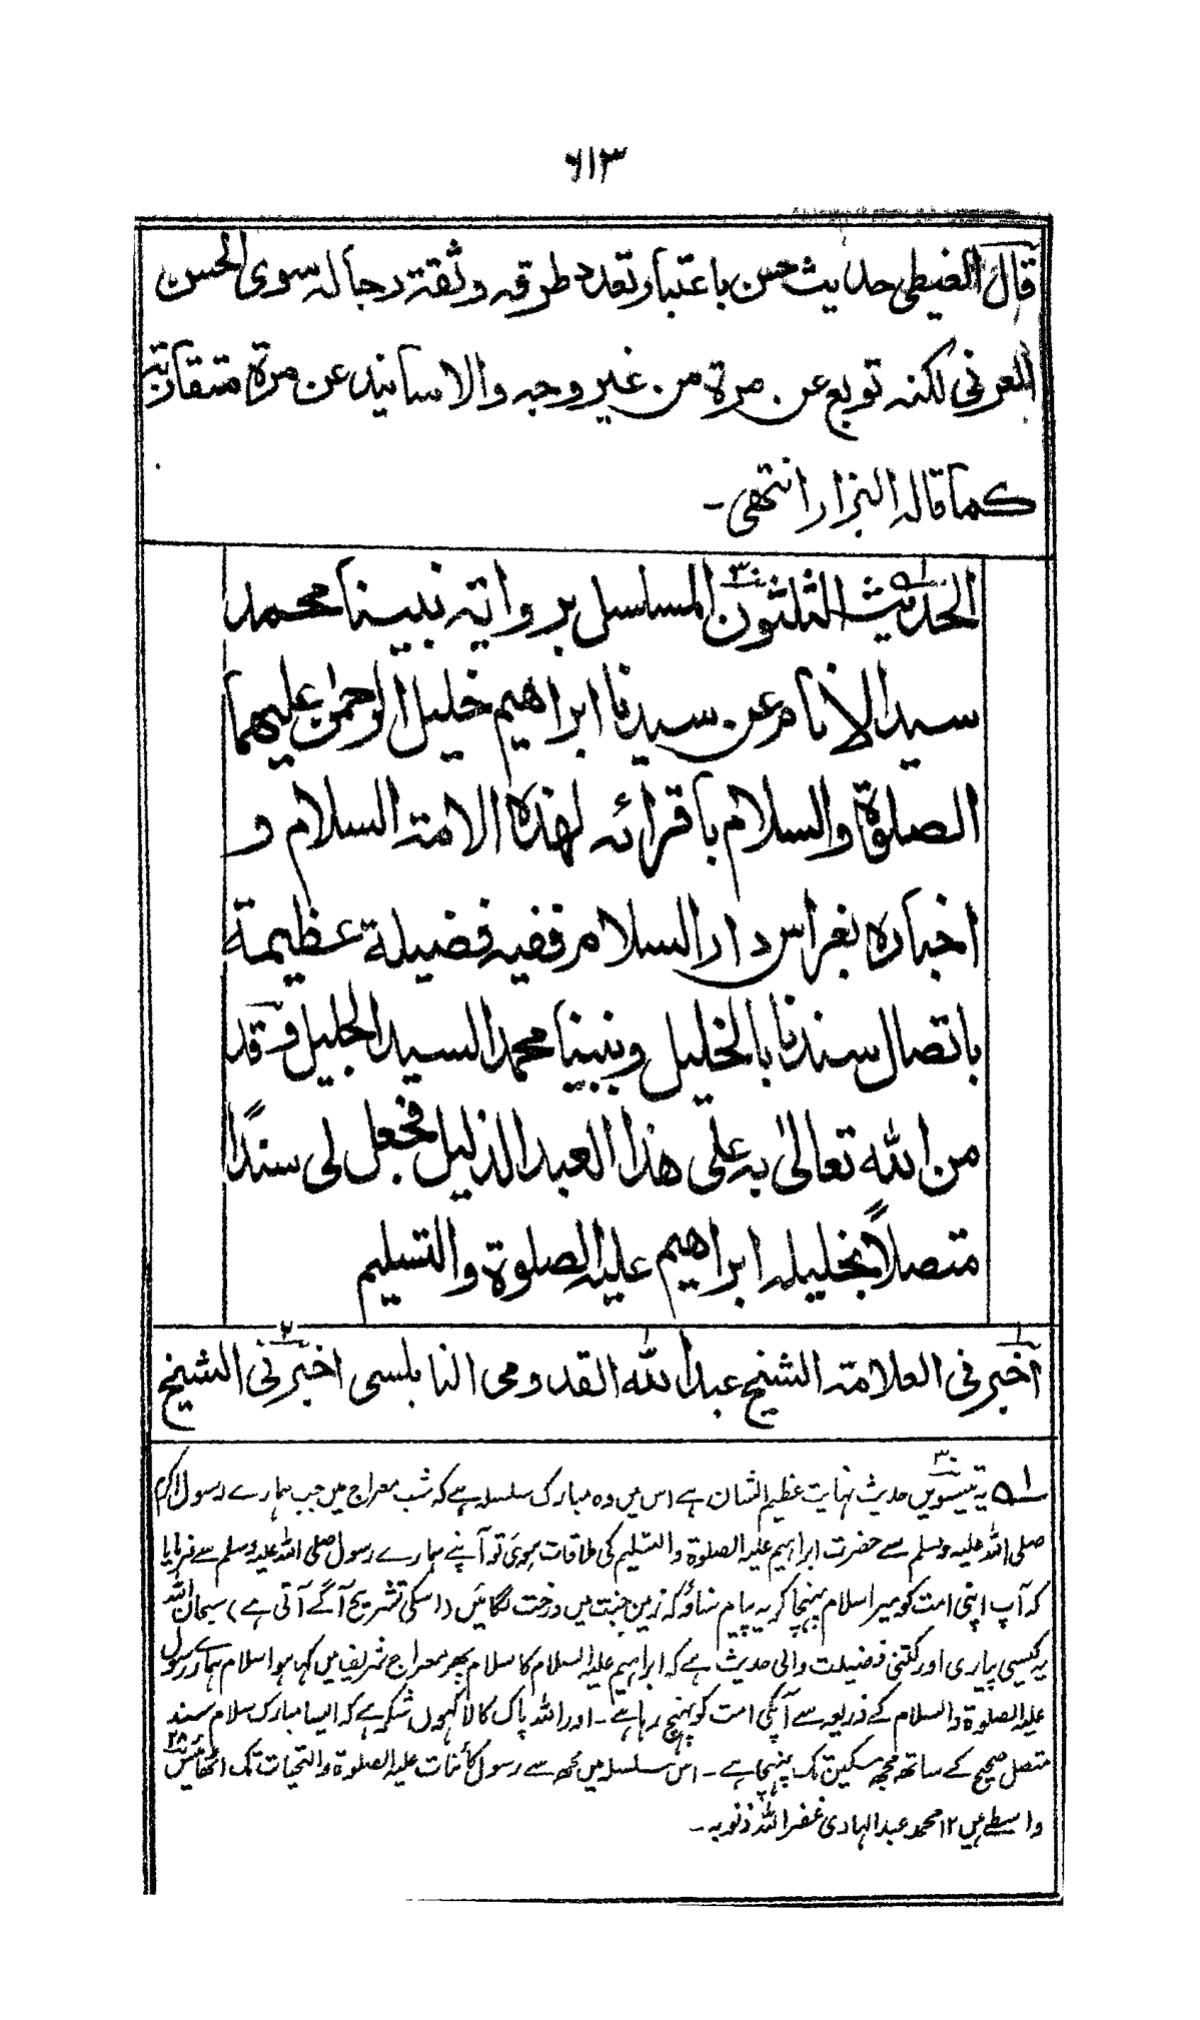 ۶۱۳
قال الغیطی حدیث حسن باعتبار تعدد طرقہ و ثقۃ رجالہ سوی الحسن
العرنی لکنہ توبع عن مرۃ من غیر وجہ والاسانید عن مرۃ متقاربۃ
کما قالہ البزار انتهی۔
الحدیث الثلثون ۳۰ المسلسل بروایۃ نبینا محمد
سید الانام عن سیدنا ابراهیم خلیل الرحمن علیهما
الصلوۃ والسلام باقرائہ لهذہ الامۃ السلام و
اخبارہ بغراس دار السلام ففیہ فضیلۃ عظیمۃ
باتصال سندنا بالخلیل ونبینا محمد السید الجلیل وقد
من اللہ تعالیٰ بہ علی هذا العبد الذلیل فجعل لی سندًا
متصلاً بخلیلہ ابراهیم علیہ الصلوۃ والتسلیم
اخبرنی العلامۃ الشیخ عبد اللہ القدومی النابلسی اخبرنی ۲ الشیخ
۱ یہ تیسویں ۳۰ حدیث نہایت عظیم الشان ہے اس میں وہ مبارک سلسلہ ہے کہ شب معراج میں جب ہمارے رسول اکرم
صلی اللہ علیہ وسلم سے حضرت ابراہیم علیہ الصلوۃ والتسلیم کی ملاقات ہوئی تو آپنے ہمارے رسول صلی اللہ علیہ وسلم سے فرمایا
کہ آپ اپنی امت کو میرا سلام پہنچا کر یہ پیام سناؤ کہ زمین جنت میں درخت لگائیں (اسکی تشریح آگے آتی ہے) سبحان اللہ
یہ کیسی پیاری اور کتنی فضیلت والی حدیث ہے کہ ابراہیم علیہ السلام کا سلام پھر معراج شریف میں کہا ہوا سلام ہمارے رسول
علیہ الصلوۃ والسلام کے ذریعہ سے آپکی امت کو پہنچ رہا ہے۔ اور اللہ پاک کا لاکھوں شکر ہے کہ ایسا مبارک سلام سند
متصل صحیح کے ساتھ مجھ مسکین تک پہنچا ہے۔ اس سلسلہ میں مجھ سے رسول کائنات علیہ الصلوۃ والتحیات تک اٹھائیس ۲۸
واسطے ہیں ۱۲ محمد عبد الہادی غفر اللہ ذنوبہ۔